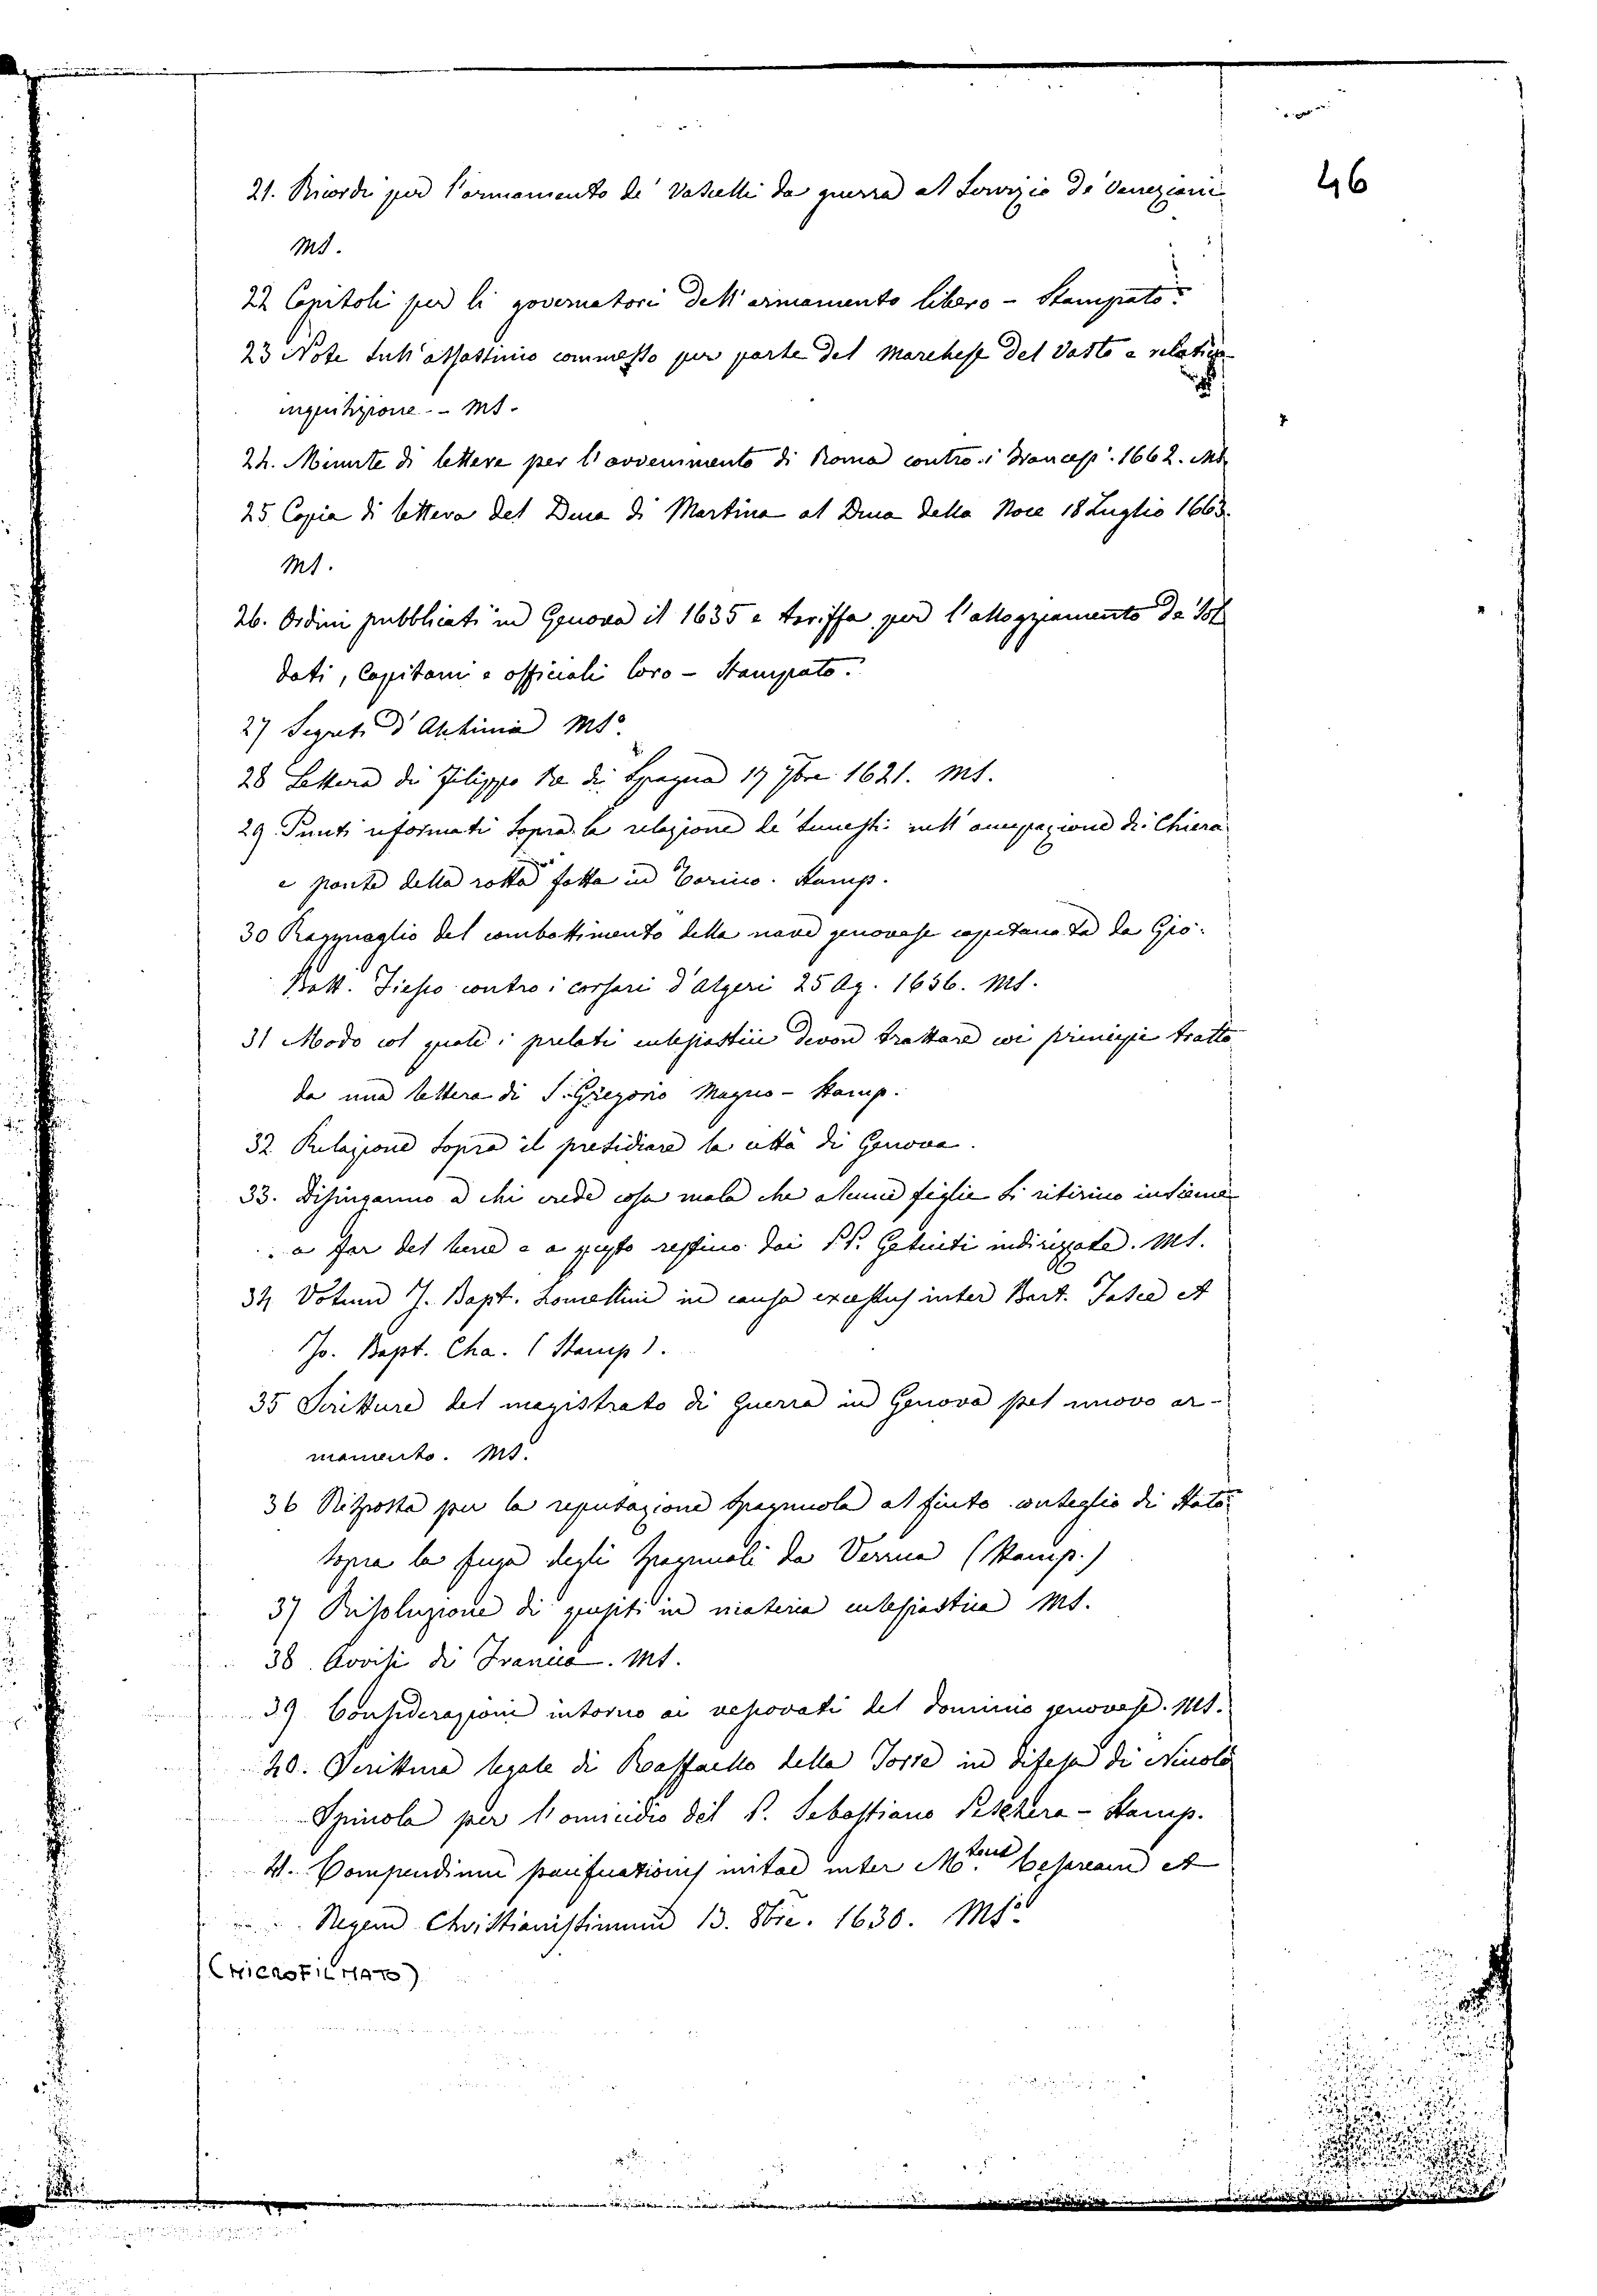 46
21. Ricordi per l'armamento de' Vascelli da guerra al servizio de' Veneziani
Ms.
22 Capitoli per li governatori dell'armamento libero - Stampato.
23 Note sull'assassinio commesso per parte del Marchese del Vasto e relativa
inquisizione. - Ms.
24. Minute di lettere per l'avvenimento di Roma contro i Francesi. 1662. Ms.
25 Copia di lettera del Duca di Martina al Duca della Noce 18 Luglio 1663.
Ms.
26. Ordini pubblicati in Genova il 1635 e tariffa per l'alloggiamento de sol
dati, Capitani e officiali loro - Stampato.
27 Segreti d'Alchimia Mso.
28 Lettera di Filippo Re di Spagna 17 7bre 1621. Ms.
29 Punti riformati sopra la relazione de successi nell'occupazione di Chiera
e ponte della rotta fatta in Torino. Stamp.
30 Ragguaglio del combattimento della nave genovese capitanata da Gio.
Batt. Fiesco contro i corsari d'Algeri 25 Ag. 1636. Ms.
31 Modo col quale i prelati eclesiastici devon trattare coi principi tratto
da una lettera di S. Gregorio Magno - Stamp.
32 Relazione sopra il presidiare la città di Genova.
33. Disinganno a chi crede cosa mala che alcune figlie si ritirino insieme
a far del bene e a questo restino dai P.P. Gesuiti indirizzate. Ms.
34 Votum J. Bapt. Lomellini in causa inter Bart. et
Jo. Bapt. Cha. (Stamp).
35 Scritture del magistrato di Guerra in Genova pel nuovo ar-
mamento. Ms.
36 Risposta per la reputazione Spagnuola al finto consiglio di Stato
sopra la fuga degli Spagnuoli da Verrua (Stamp.)
37 Risoluzione di quesiti in materia eclesiastica Ms.
38. Avvisi di Francia. Ms.
39 Considerazioni intorno ai vescovati del dominio genovese. Ms.
40. Scrittura legale di Raffaello della Torre in difesa di Nicolò
Spinola per l'omicidio del P. Sebastiano Peschera - Stamp.
41. Compendium pacificationis initae inter M.tem Cesaream et
Regem Christianissimum 13. 8bre. 1630. Mso.
(MICROFILMATO)